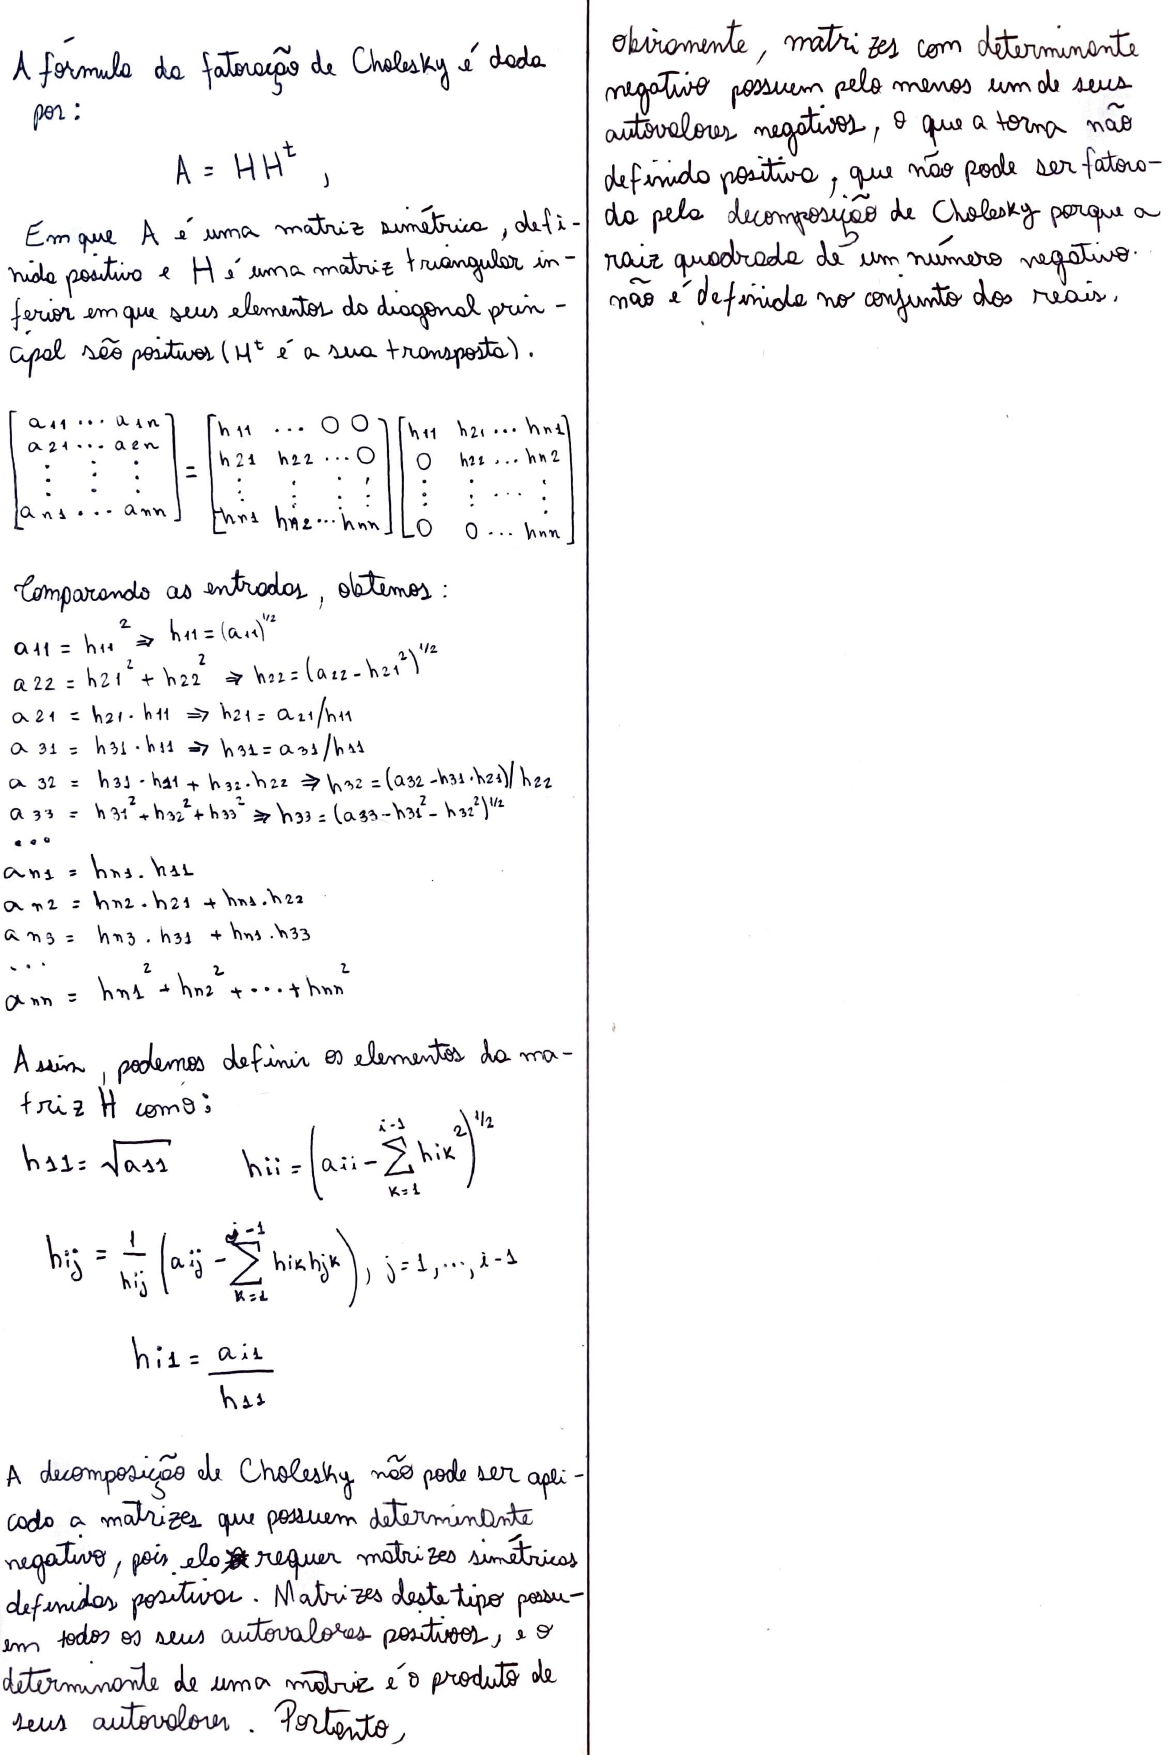 A fórmula da fatoração de Cholesky é dada
por:
A = HH^t ,
Em que A é uma matriz simétrica, defi-
nida positiva e H é uma matriz triangular in-
ferior em que seus elementos da diagonal prin-
cipal são positivos (H^t é a sua transposta).
[a11 ... a1n] = [h11 ... 0 0] [h11 h21 ... hn1]
[a21 ... a2n] [h21 h22 ... 0] [0 h22 ... hn2]
[⋮ ⋮ ⋮] [⋮ ⋮ ⋮ ⋮] [⋮ ⋮ ... ⋮]
[an1 ... ann] [hn1 hn2 ... hnn] [0 0 ... hnn]
Comparando as entradas, obtemos:
a11 = h11^2 ⇒ h11 = (a11)^1/2
a22 = h21^2 + h22^2 ⇒ h22 = (a22 - h21^2)^1/2
a21 = h21 . h11 ⇒ h21 = a21/h11
a31 = h31 . h11 ⇒ h31 = a31/h11
a32 = h31 . h21 + h32 . h22 ⇒ h32 = (a32 - h31 . h21)/h22
a33 = h31^2 + h32^2 + h33^2 ⇒ h33 = (a33 - h31^2 - h32^2)^1/2
...
an1 = hn1 . h11
an2 = hn2 . h21 + hn1 . h22
an3 = hn3 . h31 + hn1 . h33
...
ann = hn1^2 + hn2^2 + ... + hnn^2
Assim, podemos definir os elementos da ma-
triz H como:
h11 = √a11 hii = (aii - ∑_{k=1}^{i-1} hik^2)^1/2
hij = 1/hij (aij - ∑_{k=1}^{j-1} hik hjk), j = 1, ..., i-1
hi1 = ai1/h11
A decomposição de Cholesky não pode ser apli-
cada a matrizes que possuem determinante
negativo, pois ela requer matrizes simétricas
definidas positivas. Matrizes deste tipo possu-
em todos os seus autovalores positivos, e o
determinante de uma matriz é o produto de
seus autovalores. Portanto,
obviamente, matrizes com determinante
negativo possuem pelo menos um de seus
autovalores negativos, o que a torna não
definida positiva, que não pode ser fatora-
da pela decomposição de Cholesky porque a
raiz quadrada de um número negativo
não é definida no conjunto dos reais.